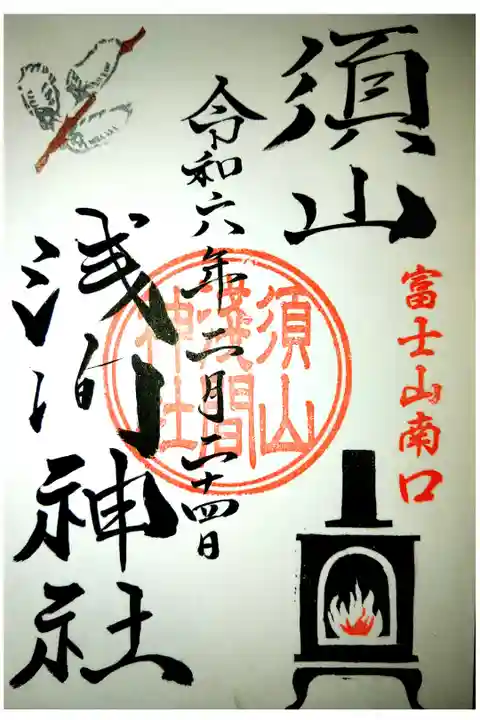 須山
富士山南口
須山
浅間
神社
令和六年二月二十四日
浅间神社